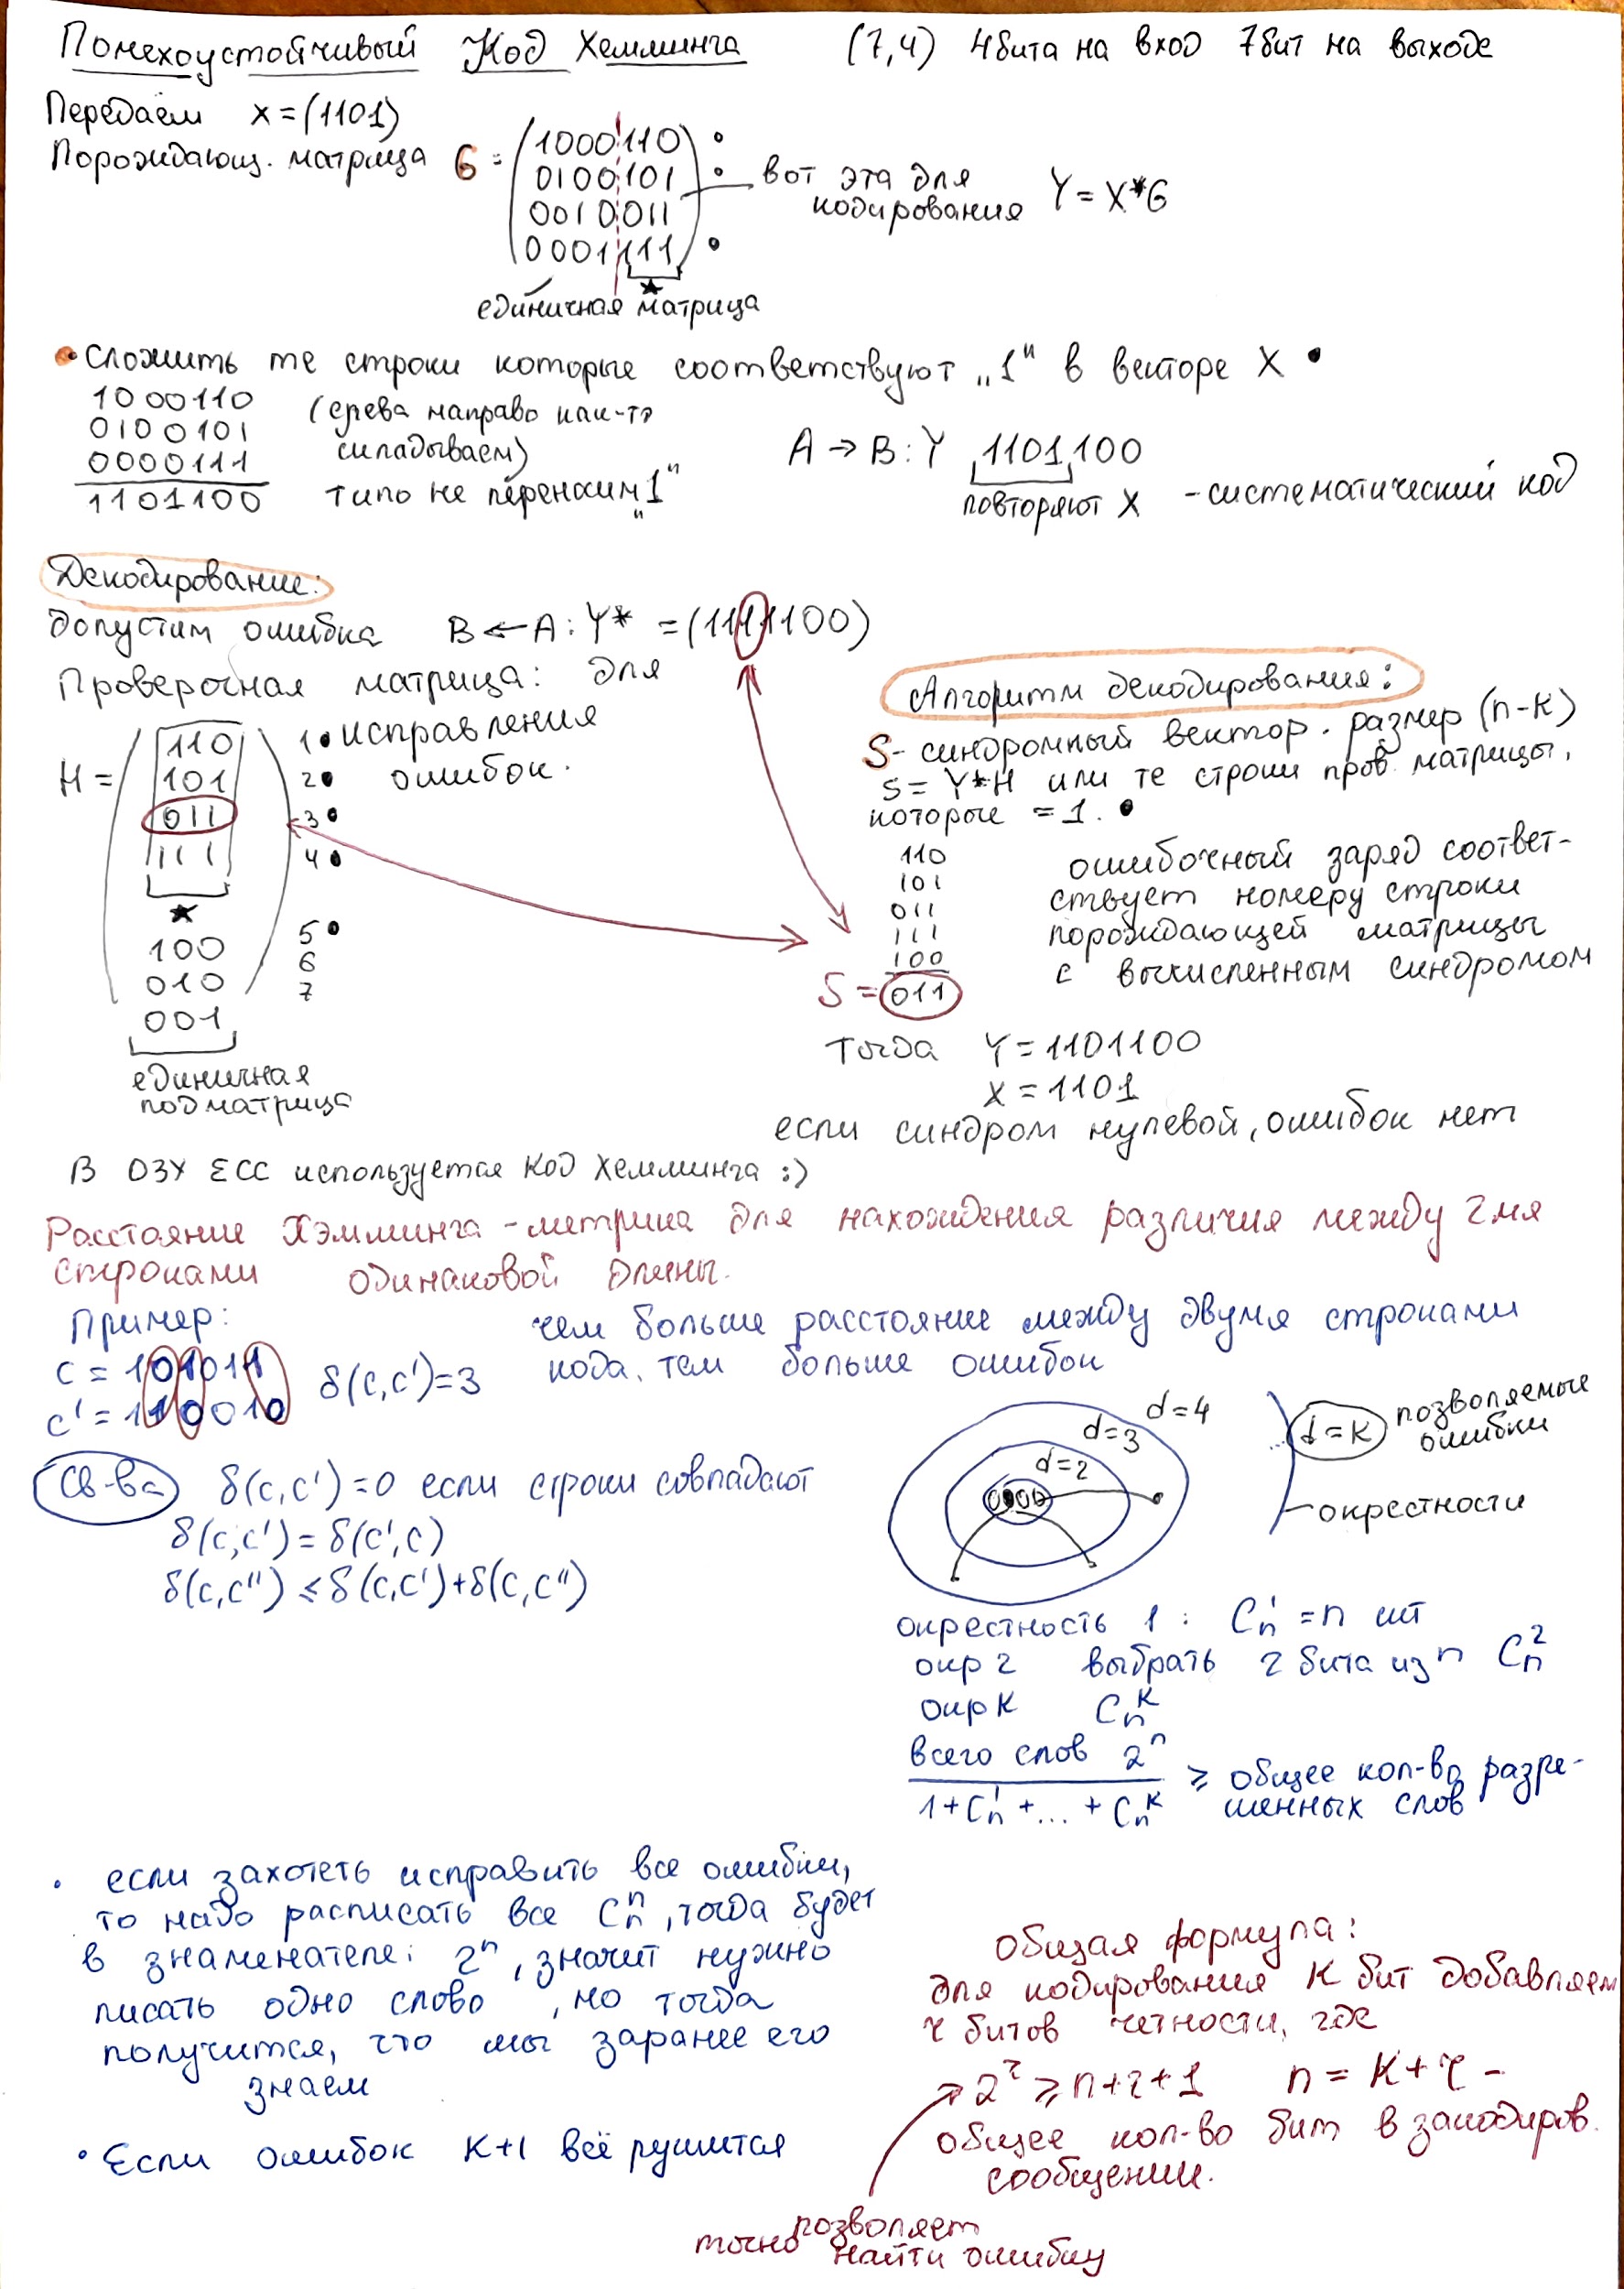 Помехоустойчивый Код Хемминга (7,4) 4бита на вход 7бит на выходе
Передаём x=(1101)
Порождающ. матрица G = (1000110)
0100101
0010011
0001111
вот эта для
кодирования Y=X*G
★
единичная матрица
• Сложить те строки которые соответствуют „1" в векторе X •
1000110
0100101
0000111
1101100
(слева направо как-то
складываем)
типо не переносим „1"
A → B: Y 1101100
повторяют X - систематический код
Декодирование:
допустим ошибка B ← A: Y* = (1111100)
Проверочная матрица: для
исправления
ошибок.
H =
110 1•
101 2•
011 3•
111 4•
★
100 5•
010 6
001 7
единичная
подматрица
Алгоритм декодирования:
S - синдромный вектор. размер (n-k)
S = Y*H или те строки пров. матрицы,
которые = 1. •
110
101
011
111
100
S = 011
ошибочный заряд соответ-
ствует номеру строки
порождающей матрицы
с вычисленным синдромом
Тогда Y = 1101100
X = 1101
если синдром нулевой, ошибок нет
В ОЗУ ECC используется Код Хемминга :)
Расстояние Хэмминга - метрика для нахождения различия между 2мя
строками одинаковой длины.
Пример:
c = 101011
c' = 110010
δ(c,c')=3
чем больше расстояние между двумя строками
кода, тем больше ошибок
Св-ва δ(c,c')=0 если строки совпадают
δ(c,c') = δ(c',c)
δ(c,c") ≤ δ(c,c')+δ(c,c")
d=4
d=3
d=2
0000
d=k позволяемые
ошибки
окрестности
окрестность 1: C_n^1 = n шт
окр 2 выбрать 2 бита из n C_n^2
окр k C_n^k
всего слов 2^n
1+C_n^1+...+C_n^k
≥ общее кол-во разре-
шенных слов
• если захотеть исправить все ошибки,
то надо расписать все C_n^n, тогда будет
в знаменателе: 2^n, значит нужно
писать одно слово, но тогда
получится, что мы заранее его
знаем
• Если ошибок k+1 всё рушится
Общая формула:
для кодирования k бит добавляем
r битов четности, где
2^r ≥ n+r+1 n = k+r -
общее кол-во бит в закодиров.
сообщении.
позволяет
точно найти ошибку